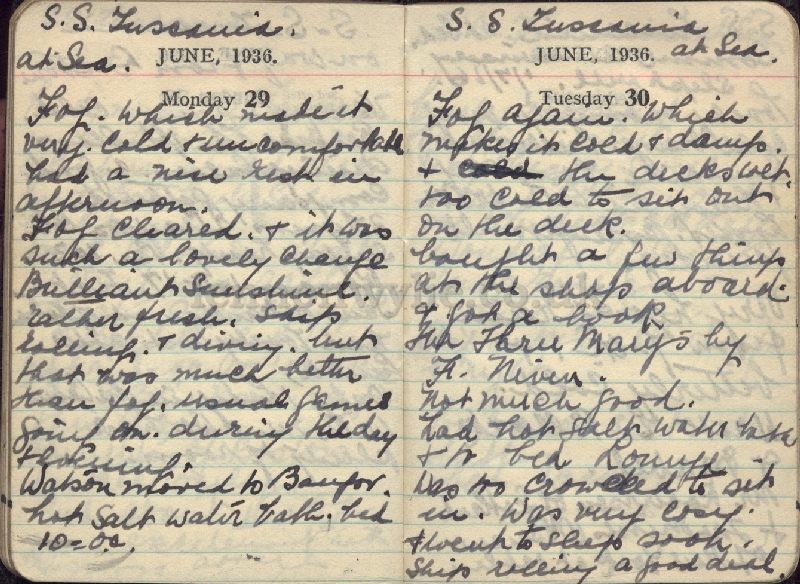 S.S. Tuscania.
at Sea. JUNE, 1936.
Monday 29
Fog. which made it
very. cold & uncomfortable
had a nice rest in
afternoon.
Fog cleared. & it was
such a lovely change
Brilliant Sunshine.
rather fresh. ship
rolling. & diving. but
that was much better
than fog. usual games
going on. during the day
& evening.
Watson moved to Bangor.
hot salt water bath. bed
10=0c.
S. S. Tuscania
JUNE, 1936. at Sea.
Tuesday 30
Fog again. Which
makes it cold & damp.
& cold the decks wet.
too cold to sit out
on the deck.
bought a few things
at the shop aboard.
& got a book
The Three Marys by
F. Niven.
not much good.
had hot salt water bath
& to bed Lounge
was too crowded to sit
in. Was very cosy.
& went to sleep soon.
Ship rolling a good deal.